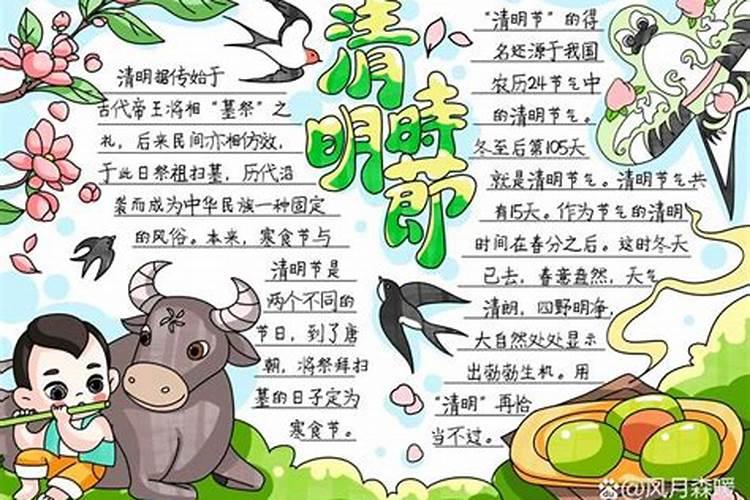 清明時節
清明据传始于
古代帝王将相“墓祭”之
礼,后来民间亦相仿效,
于此日祭祖扫墓,历代沿
袭而成为中华民族一种固定
的风俗。本来,寒食节与
清明节是
两个不同的
节日,到了唐
朝,将祭拜扫
墓的日子定为
寒食节。
“清明节”的得
名还源于我国
农历24节气中
的清明节气。
冬至后第105天
就是清明节气。清明节气共
有15天。作为节气的清明
时间在春分之后。这时冬天
已去,春意盎然,天气
清朗,四野明净,
大自然处处显示
出勃勃生机。用
“清明”再恰
当不过。
@风月森暖